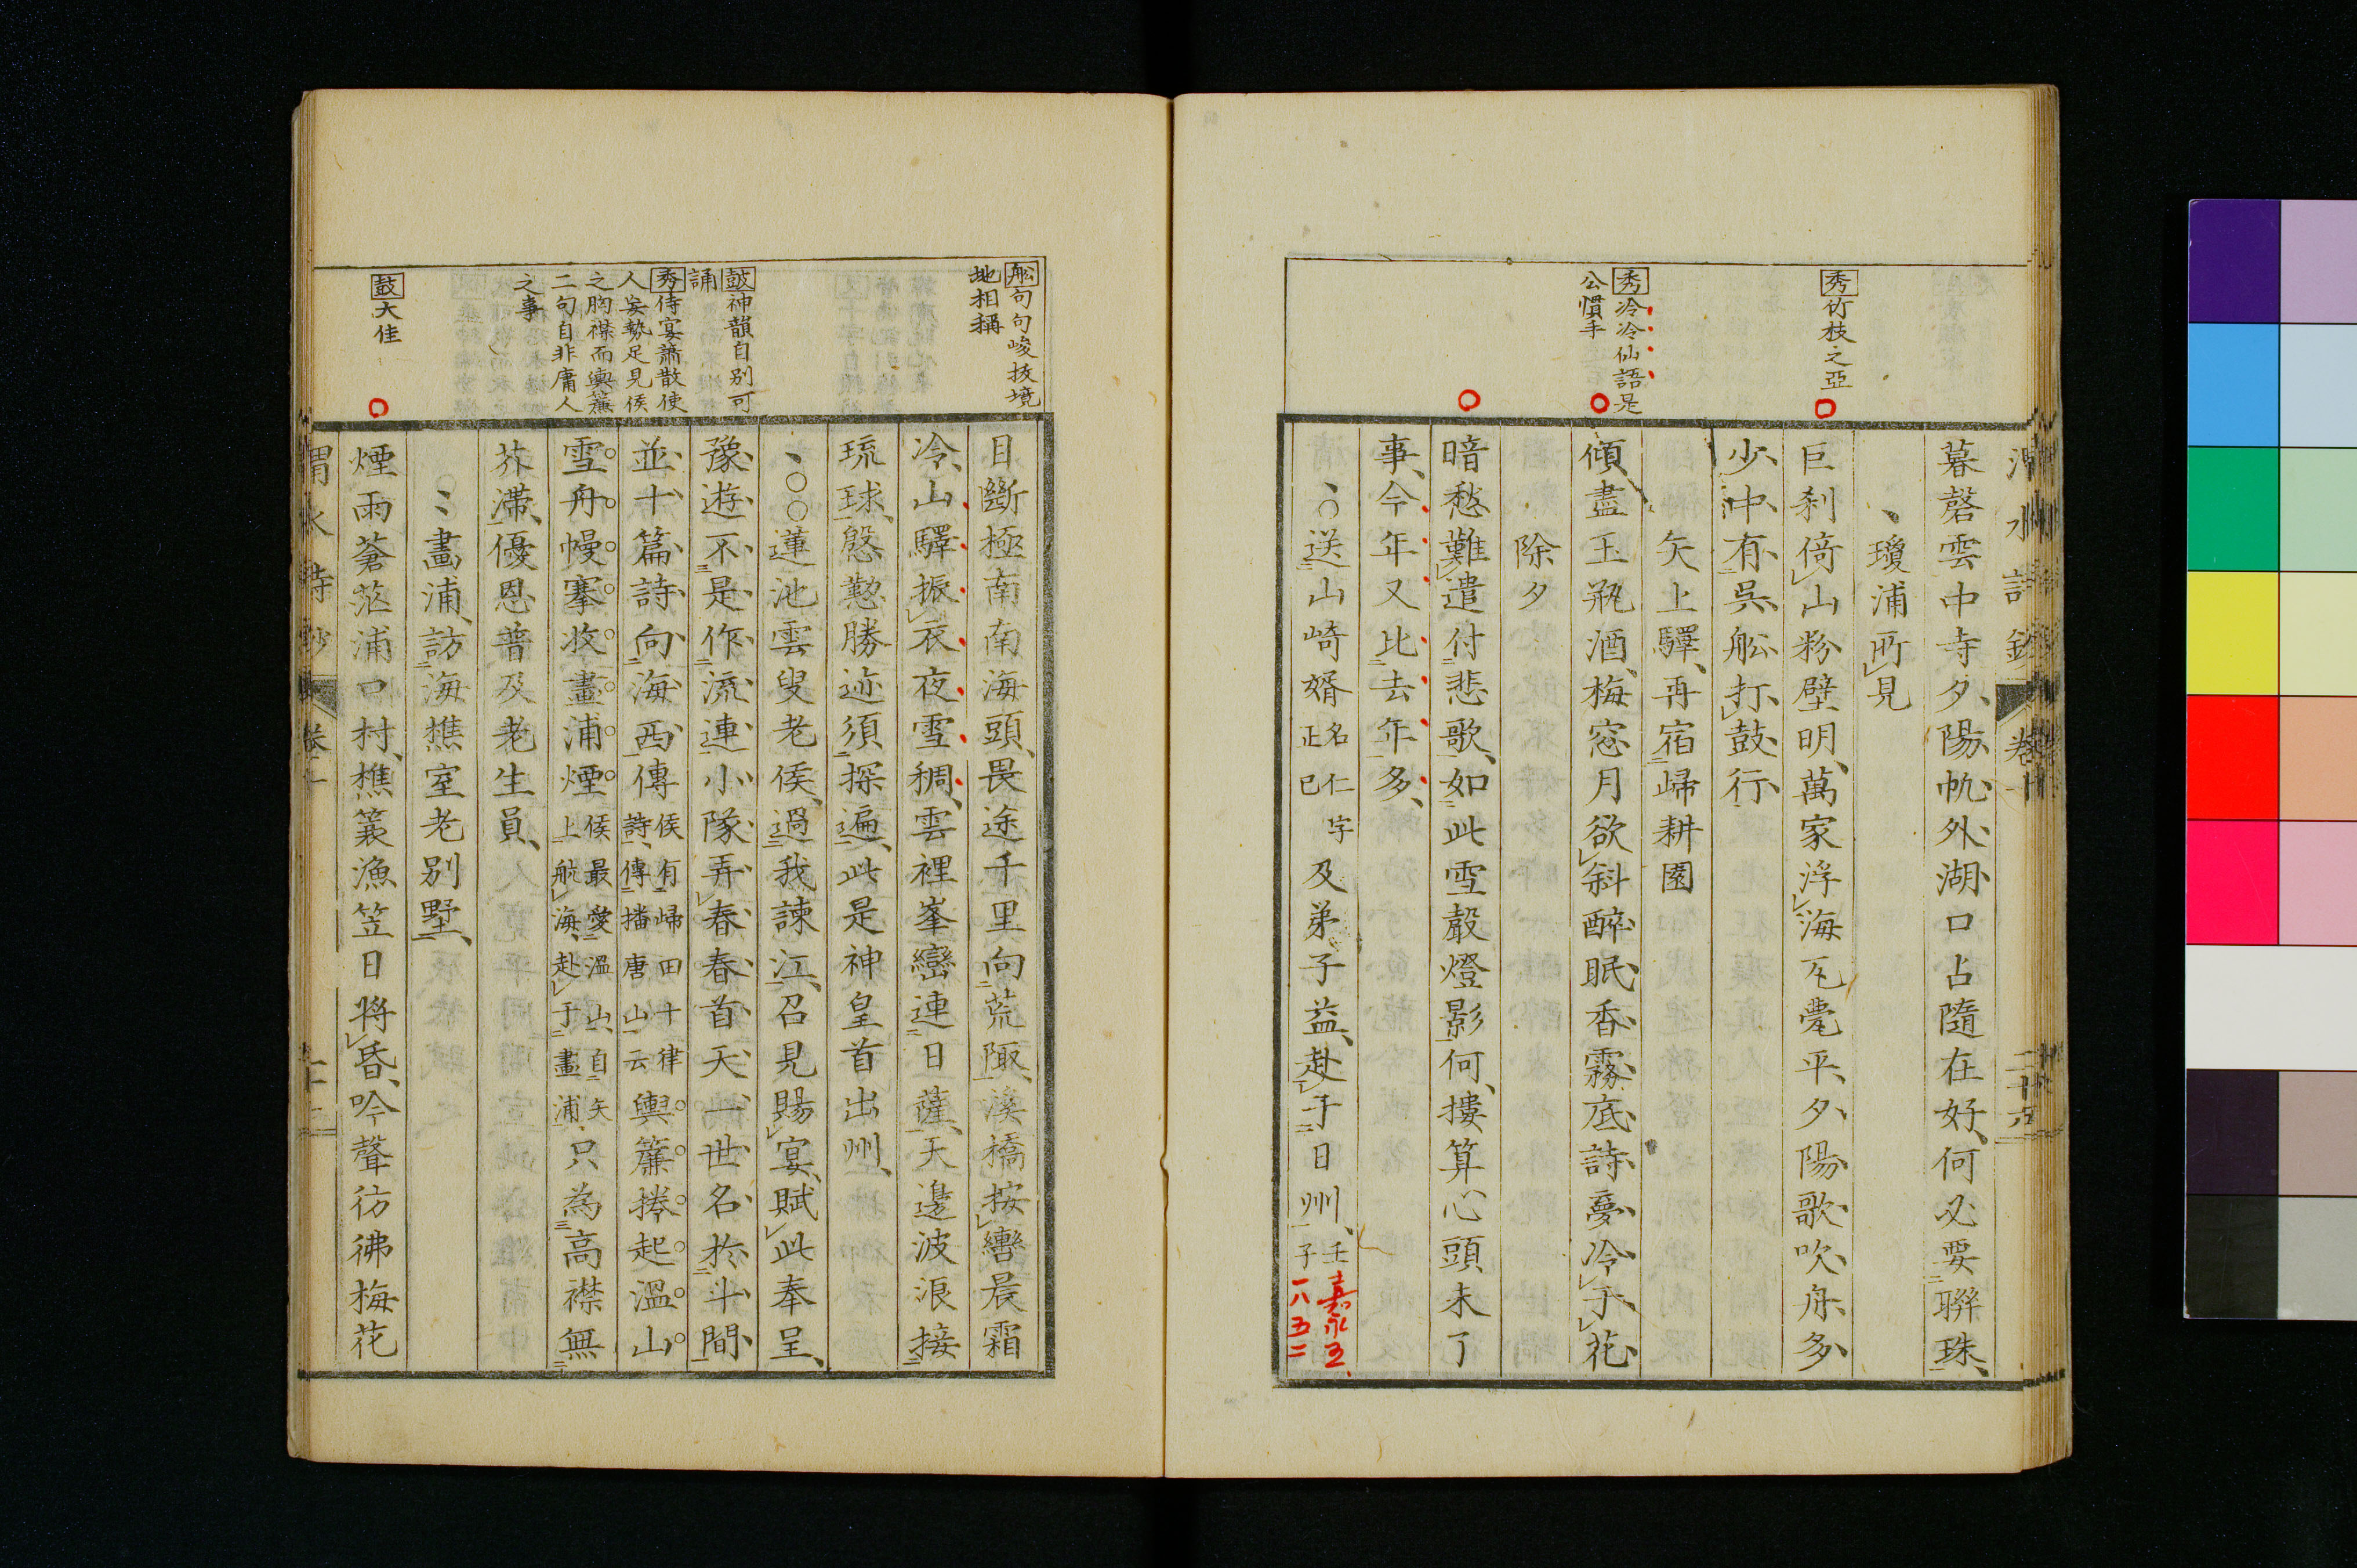 秀竹枝之亞
秀冷冷仙語是
公慣手
暮磬雲中寺夕陽帆外湖口占隨在好何必要聯珠
瓊浦所見
巨刹倚山粉壁明萬家浮海瓦甍平夕陽歌吹舟多
少中有吳舩打鼓行
矢上驛再宿歸耕園
傾盡玉瓶酒梅窓月欲斜醉眠香霧底詩夢冷于花
除夕
暗愁難遣付悲歌如此雪聲燈影何摟算心頭未了
事今年又比去年多
送山崎婿名仁字正巳及弟子益赴于日州壬子
嘉永五
一八五二
舩句句峻拔境
地相稱
鼓神韻自別可
誦
秀侍宴蕭散使
人妄勢足見侯
之胸襟而輿簾
二句自非庸人
之事
鼓大佳
目斷極南南海頭畏途千里向荒陬溪橋按轡晨霜
冷山驛振衣夜雪稠雲裡峯巒連日薩天邊波浪接
琉球慇懃勝迹須探遍此是神皇首出州
蓮池雲叟老侯過我諫江召見賜宴賦此奉呈
豫遊不是作流連小隊弄春春首天一世名於斗間
並十篇詩向海西傳侯有歸田十律詩傳播唐山云輿簾捲起溫山
雪舟幔搴收畫浦煙侯最愛溫山自矢上航海赴于畫浦只為高襟無
芥滯優恩普及老生員
畫浦訪海樵室老別墅
煙雨蒼茫浦口村樵簑漁笠日將昏吟聲彷彿梅花